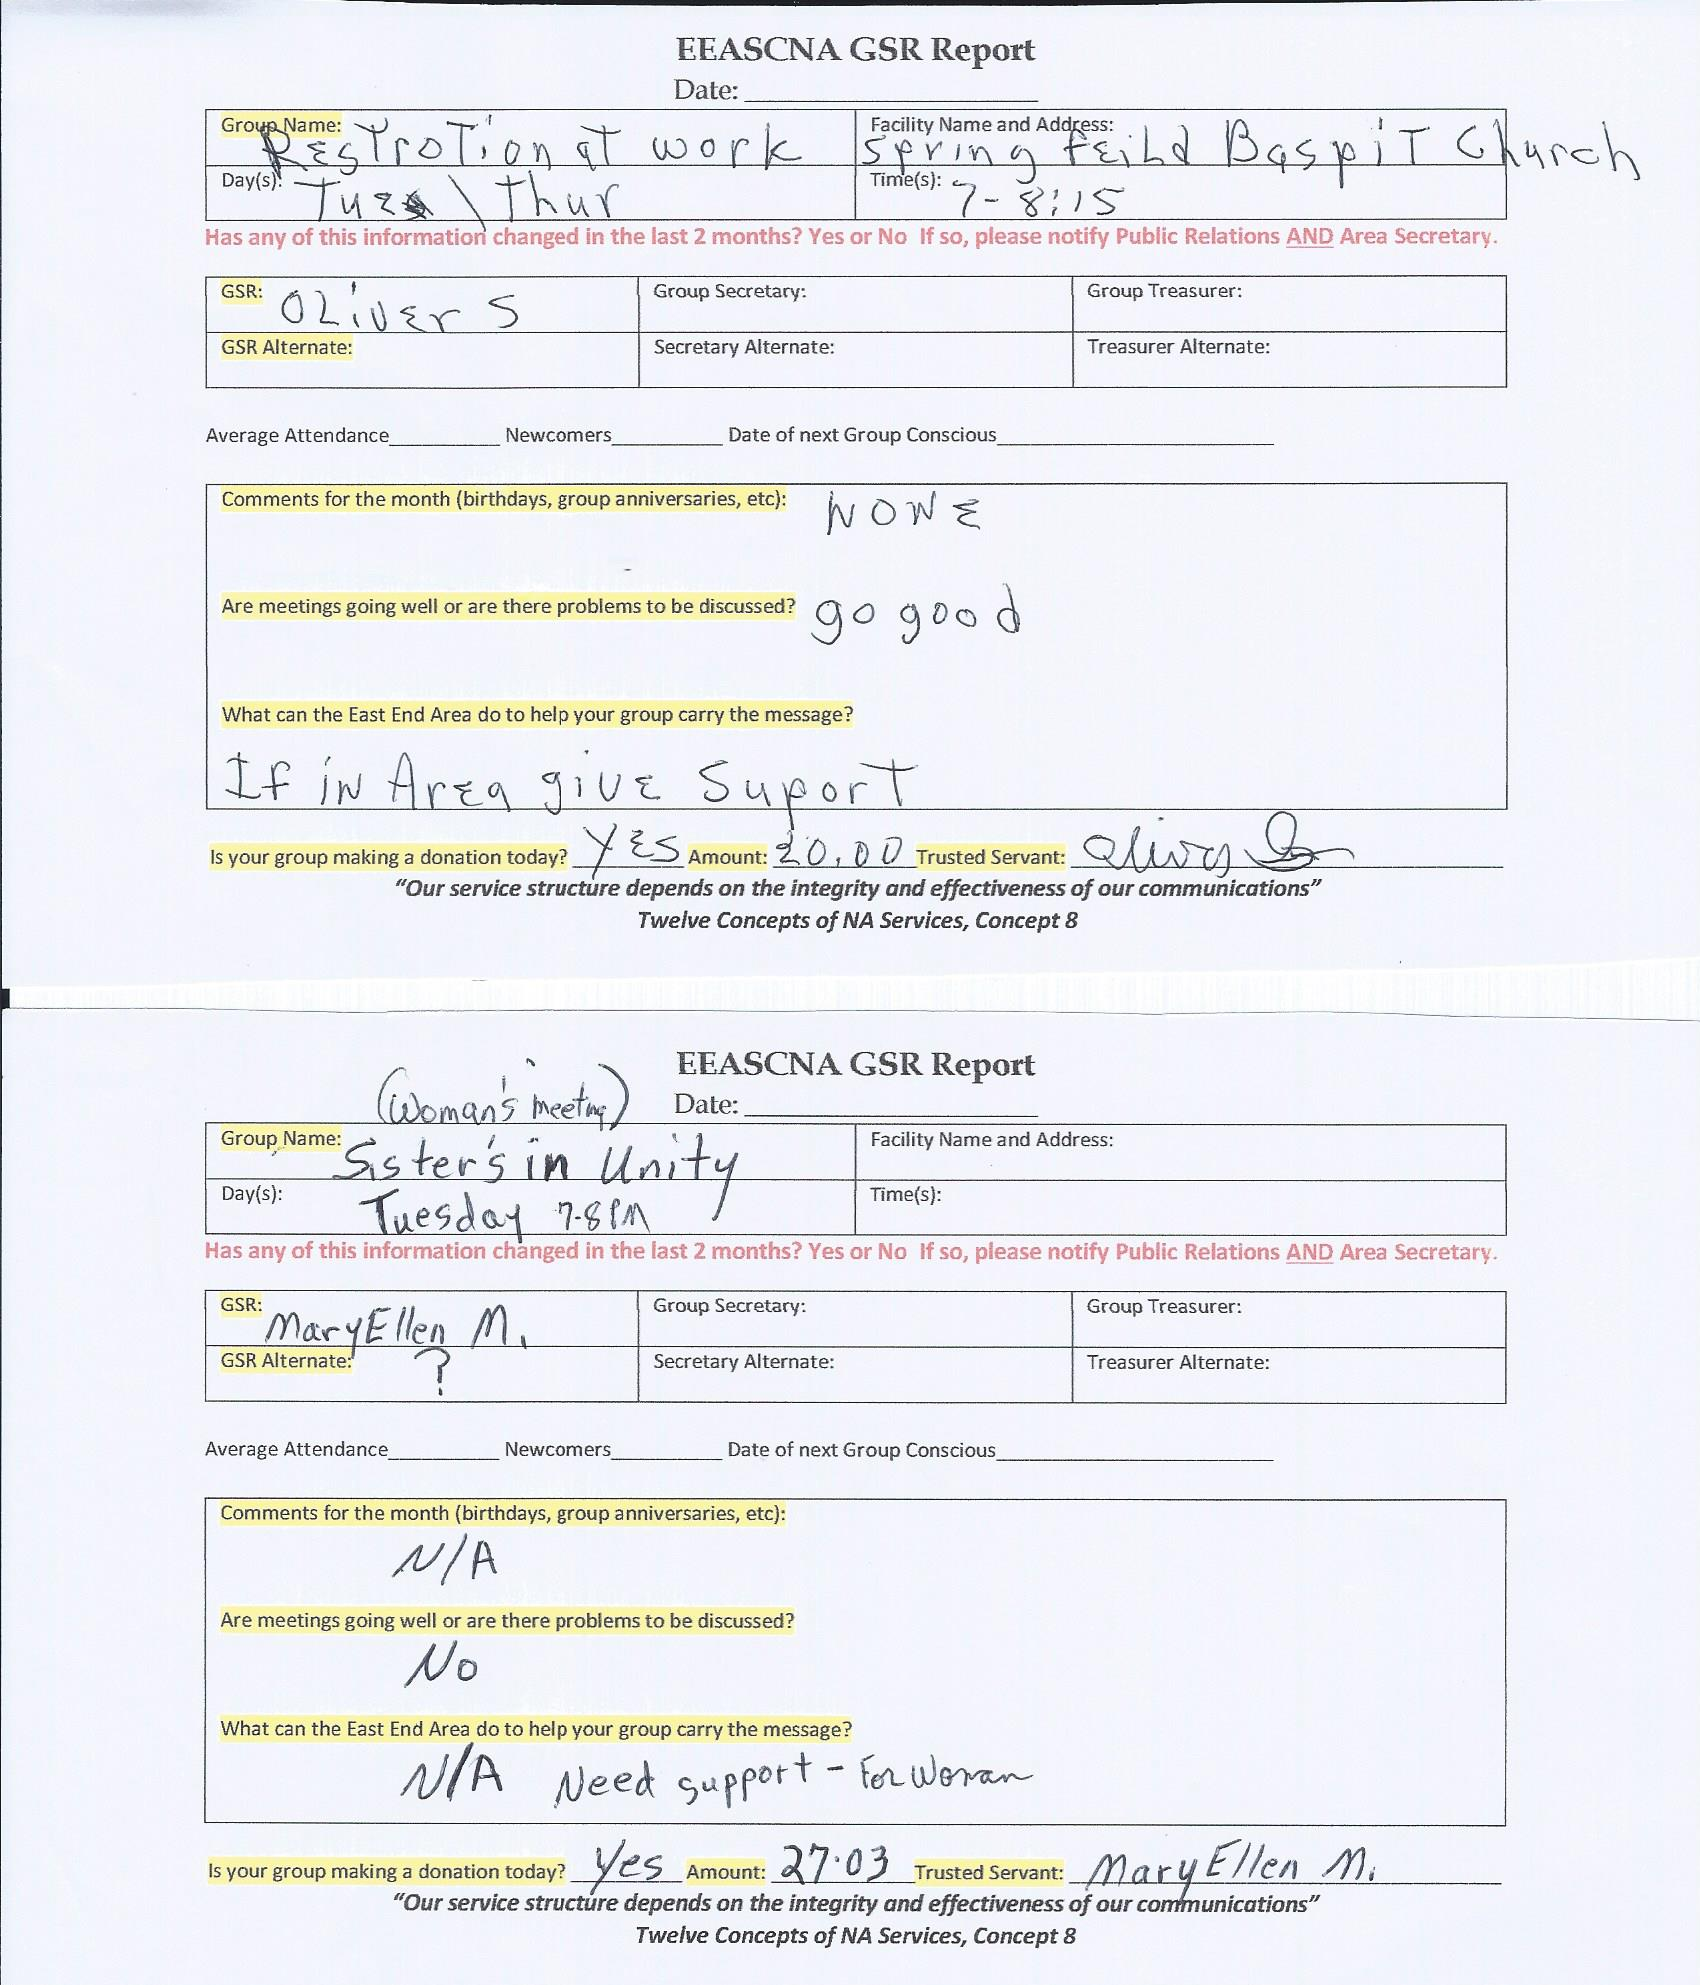 EEASCNA GSR Report
Date: ____________________
Group Name: RESTroTion aT work Facility Name and Address: Spring feild BaspiT Church
Day(s): Tues \ Thur Time(s): 7-8:15
Has any of this information changed in the last 2 months? Yes or No If so, please notify Public Relations AND Area Secretary.
GSR: OLiver S Group Secretary: Group Treasurer:
GSR Alternate: Secretary Alternate: Treasurer Alternate:
Average Attendance__________ Newcomers__________ Date of next Group Conscious_________________________
Comments for the month (birthdays, group anniversaries, etc): NONE
Are meetings going well or are there problems to be discussed? go good
What can the East End Area do to help your group carry the message?
If iN Area giVE SuporT
Is your group making a donation today? YES Amount: 20.00 Trusted Servant:
“Our service structure depends on the integrity and effectiveness of our communications”
Twelve Concepts of NA Services, Concept 8
EEASCNA GSR Report
(Woman's meeting) Date: ____________________
Group Name: Sister's in Unity Facility Name and Address:
Day(s): Tuesday 7-8 PM Time(s):
Has any of this information changed in the last 2 months? Yes or No If so, please notify Public Relations AND Area Secretary.
GSR: MaryEllen M. Group Secretary: Group Treasurer:
GSR Alternate: ? Secretary Alternate: Treasurer Alternate:
Average Attendance__________ Newcomers__________ Date of next Group Conscious_________________________
Comments for the month (birthdays, group anniversaries, etc):
N/A
Are meetings going well or are there problems to be discussed?
No
What can the East End Area do to help your group carry the message?
N/A Need support - For Woman
Is your group making a donation today? Yes Amount: 27.03 Trusted Servant: MaryEllen M.
“Our service structure depends on the integrity and effectiveness of our communications”
Twelve Concepts of NA Services, Concept 8